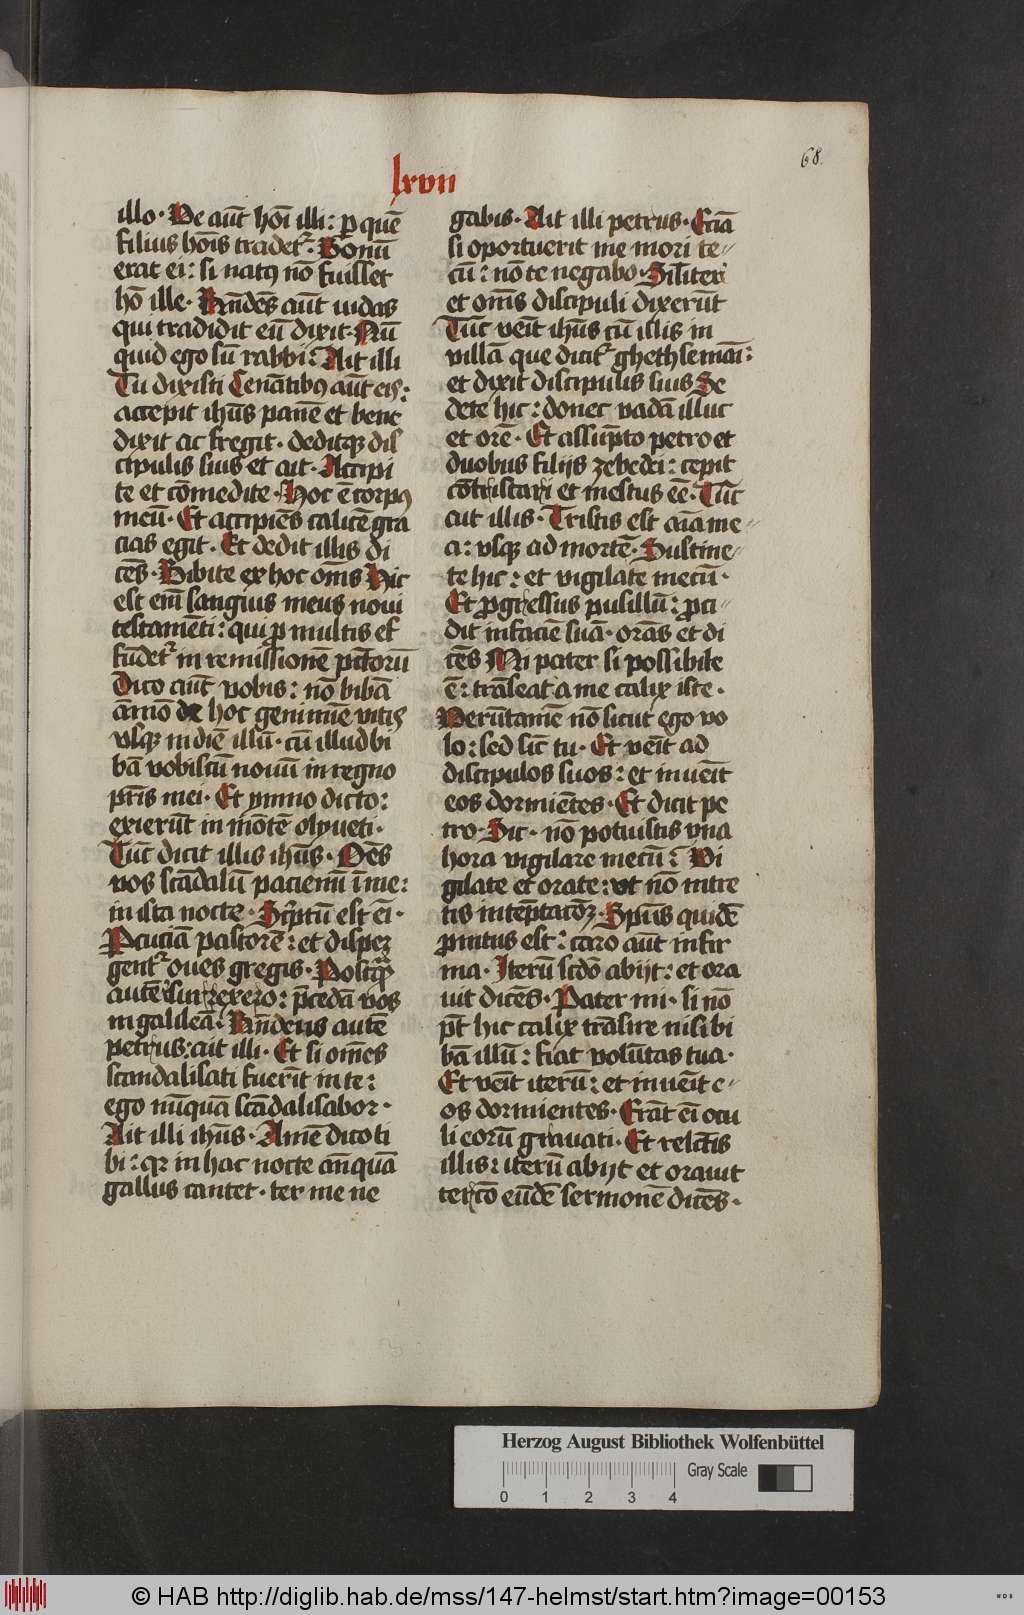 68.
lxvii
illo · Ve aūt hōi illi : p quē
filius hōis tradetͬ · Bonū
erat ei : si natꝯ nō fuisset
hō ille · Rn̄dēs aūt iudas
qui tradidit eū dixit · Nū
quid ego sū rabbi : Ait illi
Tu dixisti Cenātibꝯ aūt eis :
accepit ihūs panē et bene
dixit ac fregit · deditqꝫ dis
cipulis suis et ait · Accipi
te et cōmedite · Hoc ē corpꝯ
meū · Et accipiēs calicē gra
cias egit · Et dedit illis di
cēs · Bibite ex hoc om̄s Hic
est em̄ sangius meus noui
testamēti : qui ꝓ multis ef
fūdetͬ in remissionē pctōrū
Dico aūt vobis : nō bibā
āmō de hoc genimīe vitis
vsqꝫ in diē illū · cū illud bi
bā vobiscū nouū in regno
pr̄is mei · Et ymno dicto :
exierūt in mōtē olyueti ·
Tūc dicit illis ihūs · Om̄s
vos scādalū paciemī ī me :
in ista nocte · Scͥptū est ei̅ ·
Pcuciā pastorē : et disper
gentͬ oues gregis · Postqᷓ
autē surrexero : p̄cedā vos
in galileā · Rn̄dens autē
petrus : ait illi · Et si om̄es
scandalisati fuerīt in te :
ego nūquā scādalisabor ·
Ait illi ihūs · Amē dico ti
bi : qꝛ in hac nocte ān̄quā
gallus cantet · ter me ne
gabis · Ait illi petrus · Eciā
si oportuerit me mori te-
cū : nō te negabo · Silr̄iter
et om̄s discipuli dixerūt
Tūc veīt ihūs cū illis in
villā que dicitͬ ghethsemāi :
et dixit discipulis suis Se
dete hic : donec vadā illuc
et orē · Et assūpto petro et
duobus filijs zebedei : cepit
cōtristari et mestus eē · Tūc
ait illis · Tristis est aīa me-
a : vsqꝫ ad mortē · Sustine-
te hic : et vigilate mecū ·
Et ꝓgressus pusillū : ꝓci-
dit in faciē suā · orās et di
cēs Mi pater si possibile
ē : trāseat a me calix iste ·
Verūtamē nō sicut ego vo
lo : sed sic̄ tu · Et veīt ad
discipulos suos : et inueīt
eos dormiētes · Et dicit pe
tro · Sic · nō potuistis vna
hora vigilare mecū : Vi
gilate et orate : vt nō intre
tis in tēptacōꝫ · Sp̄us quidē
ꝓmtus est : caro aūt infir
ma · Iterū scdō abijt : et ora
uit dicēs · Pater mi · si nō
pt̄ hic calix trāsire nisi bi
bā illū : fiat volūtas tua ·
Et veīt iterū : et inueīt e-
os dormientes · Erāt ei̅ ocu
li eorū grauati · Et relc̄tis
illis : iterū abijt et orauit
tercō eūdē sermonē dicēs ·
Herzog August Bibliothek Wolfenbüttel
Gray Scale
0 1 2 3 4
© HAB http://diglib.hab.de/mss/147-helmst/start.htm?image=00153